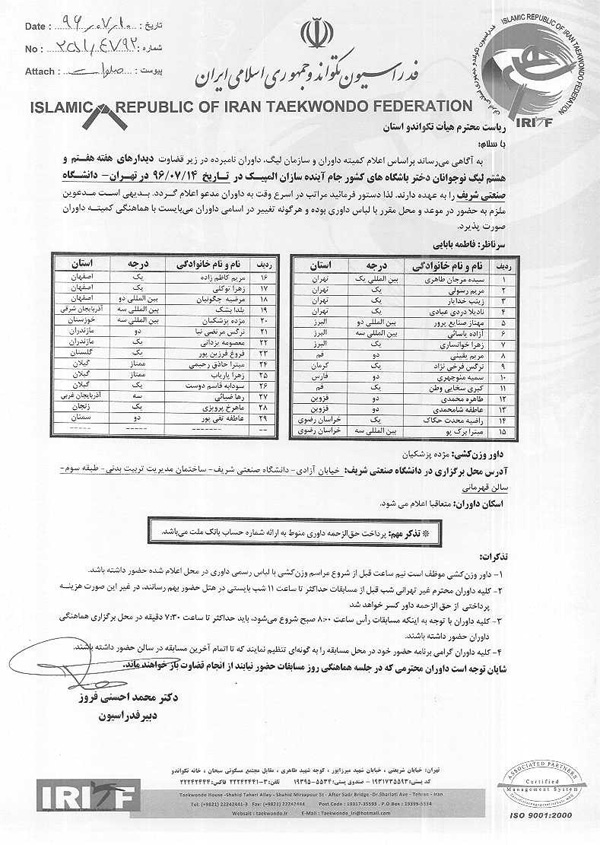 Date : ۹۶،۰۷،۱۰ تاریخ :
No : شماره:
Attach : پیوست :
فدراسیون تکواندو جمهوری اسلامی ایران
ISLAMIC REPUBLIC OF IRAN TAEKWONDO FEDERATION
ISLAMIC REPUBLIC OF IRAN TAEKWONDO FEDERATION
فدراسیون تکواندو جمهوری اسلامی ایران
IRITF
ریاست محترم هیأت تکواندو استان
با سلام؛
به آگاهی می‌رساند براساس اعلام کمیته داوران و سازمان لیگ، داوران نامبرده در زیر قضاوت دیدارهای هفته هفتم و
هشتم لیگ نوجوانان دختر باشگاه های کشور جام آینده سازان المپیک در تاریخ ۹۶/۰۷/۱۴ در تهران- دانشگاه
صنعتی شریف را به عهده دارند. لذا دستور فرمائید مراتب در اسرع وقت به داوران مدعو اعلام گردد. بدیهی است مدعوین
ملزم به حضور در موعد و محل مقرر با لباس داوری بوده و هرگونه تغییر در اسامی داوران می‌بایست با هماهنگی کمیته داوران
صورت پذیرد.
سرناظر: فاطمه بابایی
ردیف نام و نام خانوادگی درجه استان
۱ سیده مرجان طاهری بین المللی یک تهران
۲ مریم رسولی یک تهران
۳ زینب خدایار یک تهران
۴ نادیلا دردی عبادی یک تهران
۵ مهناز صنایع پرور بین المللی دو البرز
۶ آزاده یاسائی بین المللی سه البرز
۷ زهرا خوانساری یک البرز
۸ مریم یقینی دو قم
۹ نرگس فرخی نژاد یک کرمان
۱۰ سمیه منوچهری دو فارس
۱۱ کبری سخایی وطن یک قم
۱۲ طاهره محمدی دو قزوین
۱۳ عاطفه شامحمدی دو قزوین
۱۴ راضیه محدث حکاک یک خراسان رضوی
۱۵ میترا برک پو بین المللی سه خراسان رضوی
ردیف نام و نام خانوادگی درجه استان
۱۶ مریم کاظم زاده یک اصفهان
۱۷ زهرا توکلی یک اصفهان
۱۸ مرضیه چگونیان بین المللی دو اصفهان
۱۹ یلدا بشک بین المللی سه آذربایجان شرقی
۲۰ مژده پزشکیان بین المللی سه خوزستان
۲۱ نرگس مرتضی نیا دو مازندران
۲۲ معصومه یزدانی یک مازندران
۲۳ فروغ فرزین پور یک گلستان
۲۴ میترا حاذق رحیمی ممتاز گیلان
۲۵ زهرا یاریاب ممتاز گیلان
۲۶ سودابه قاسم دوست یک گیلان
۲۷ رها ضیائی سه آذربایجان غربی
۲۸ ماهرخ پرویزی یک زنجان
۲۹ عاطفه تقی پور دو سمنان
داور وزن‌کشی: مژده پزشکیان
آدرس محل برگزاری در دانشگاه صنعتی شریف: خیابان آزادی- دانشگاه صنعتی شریف- ساختمان مدیریت تربیت بدنی- طبقه سوم-
سالن قهرمانی
اسکان داوران: متعاقبا اعلام می شود.
* تذکر مهم: پرداخت حق‌الزحمه داوری منوط به ارائه شماره حساب بانک ملت می‌باشد.
تذکرات:
۱- داور وزن‌کشی موظف است نیم ساعت قبل از شروع مراسم وزن‌کشی با لباس رسمی داوری در محل اعلام شده حضور داشته باشد.
۲- کلیه داوران محترم غیر تهرانی شب قبل از مسابقات حداکثر تا ساعت ۱۱ شب بایستی در هتل حضور بهم رسانند، در غیر این صورت هزینه
پرداختی از حق الزحمه داور کسر خواهد شد.
۳- کلیه داوران با توجه به اینکه مسابقات رأس ساعت ۸:۰۰ صبح شروع می‌شود، باید حداکثر تا ساعت ۷:۳۰ دقیقه در محل برگزاری هماهنگی
داوران حضور داشته باشند.
۴- کلیه داوران گرامی برنامه حضور خود در محل مسابقه را به گونه‌ای تنظیم نمایند که تا اتمام آخرین مسابقه در سالن حضور داشته باشند.
شایان توجه است داوران محترمی که در جلسه هماهنگی روز مسابقات حضور نیابند از انجام قضاوت باز خواهند ماند.
دکتر محمد احسنی فروز
دبیر فدراسیون
تهران: خیابان شریعتی، خیابان شهید میرزاپور، کوچه شهید طاهری، مقابل مجتمع مسکونی سبحان، خانه تکواندو
کد پستی: ۱۹۳۱۷۳۵۵۹۳ - صندوق پستی: ۵۵۳۴-۱۹۳۹۵ تلفن: ۳-۲۲۲۴۲۴۴۱ فاکس: ۲۲۲۴۲۴۴۴
Taekwondo House -Shahid Taheri Alley - Shahid Mirzapour St - After Sadr Bridge -Dr.Shariati Ave - Tehran - Iran
Tel: (+9821) 22242441-3 Fax: (+9821) 22242444 Post Code : 19317-35593 P.O Box : 19395-5534
Websait : taekwondo.ir E-Mail : Taekwondo_iri@hotmail.com
IRITF
ASSOCIATED PARTNERS
Certified
Management System
ISO 9001:2000